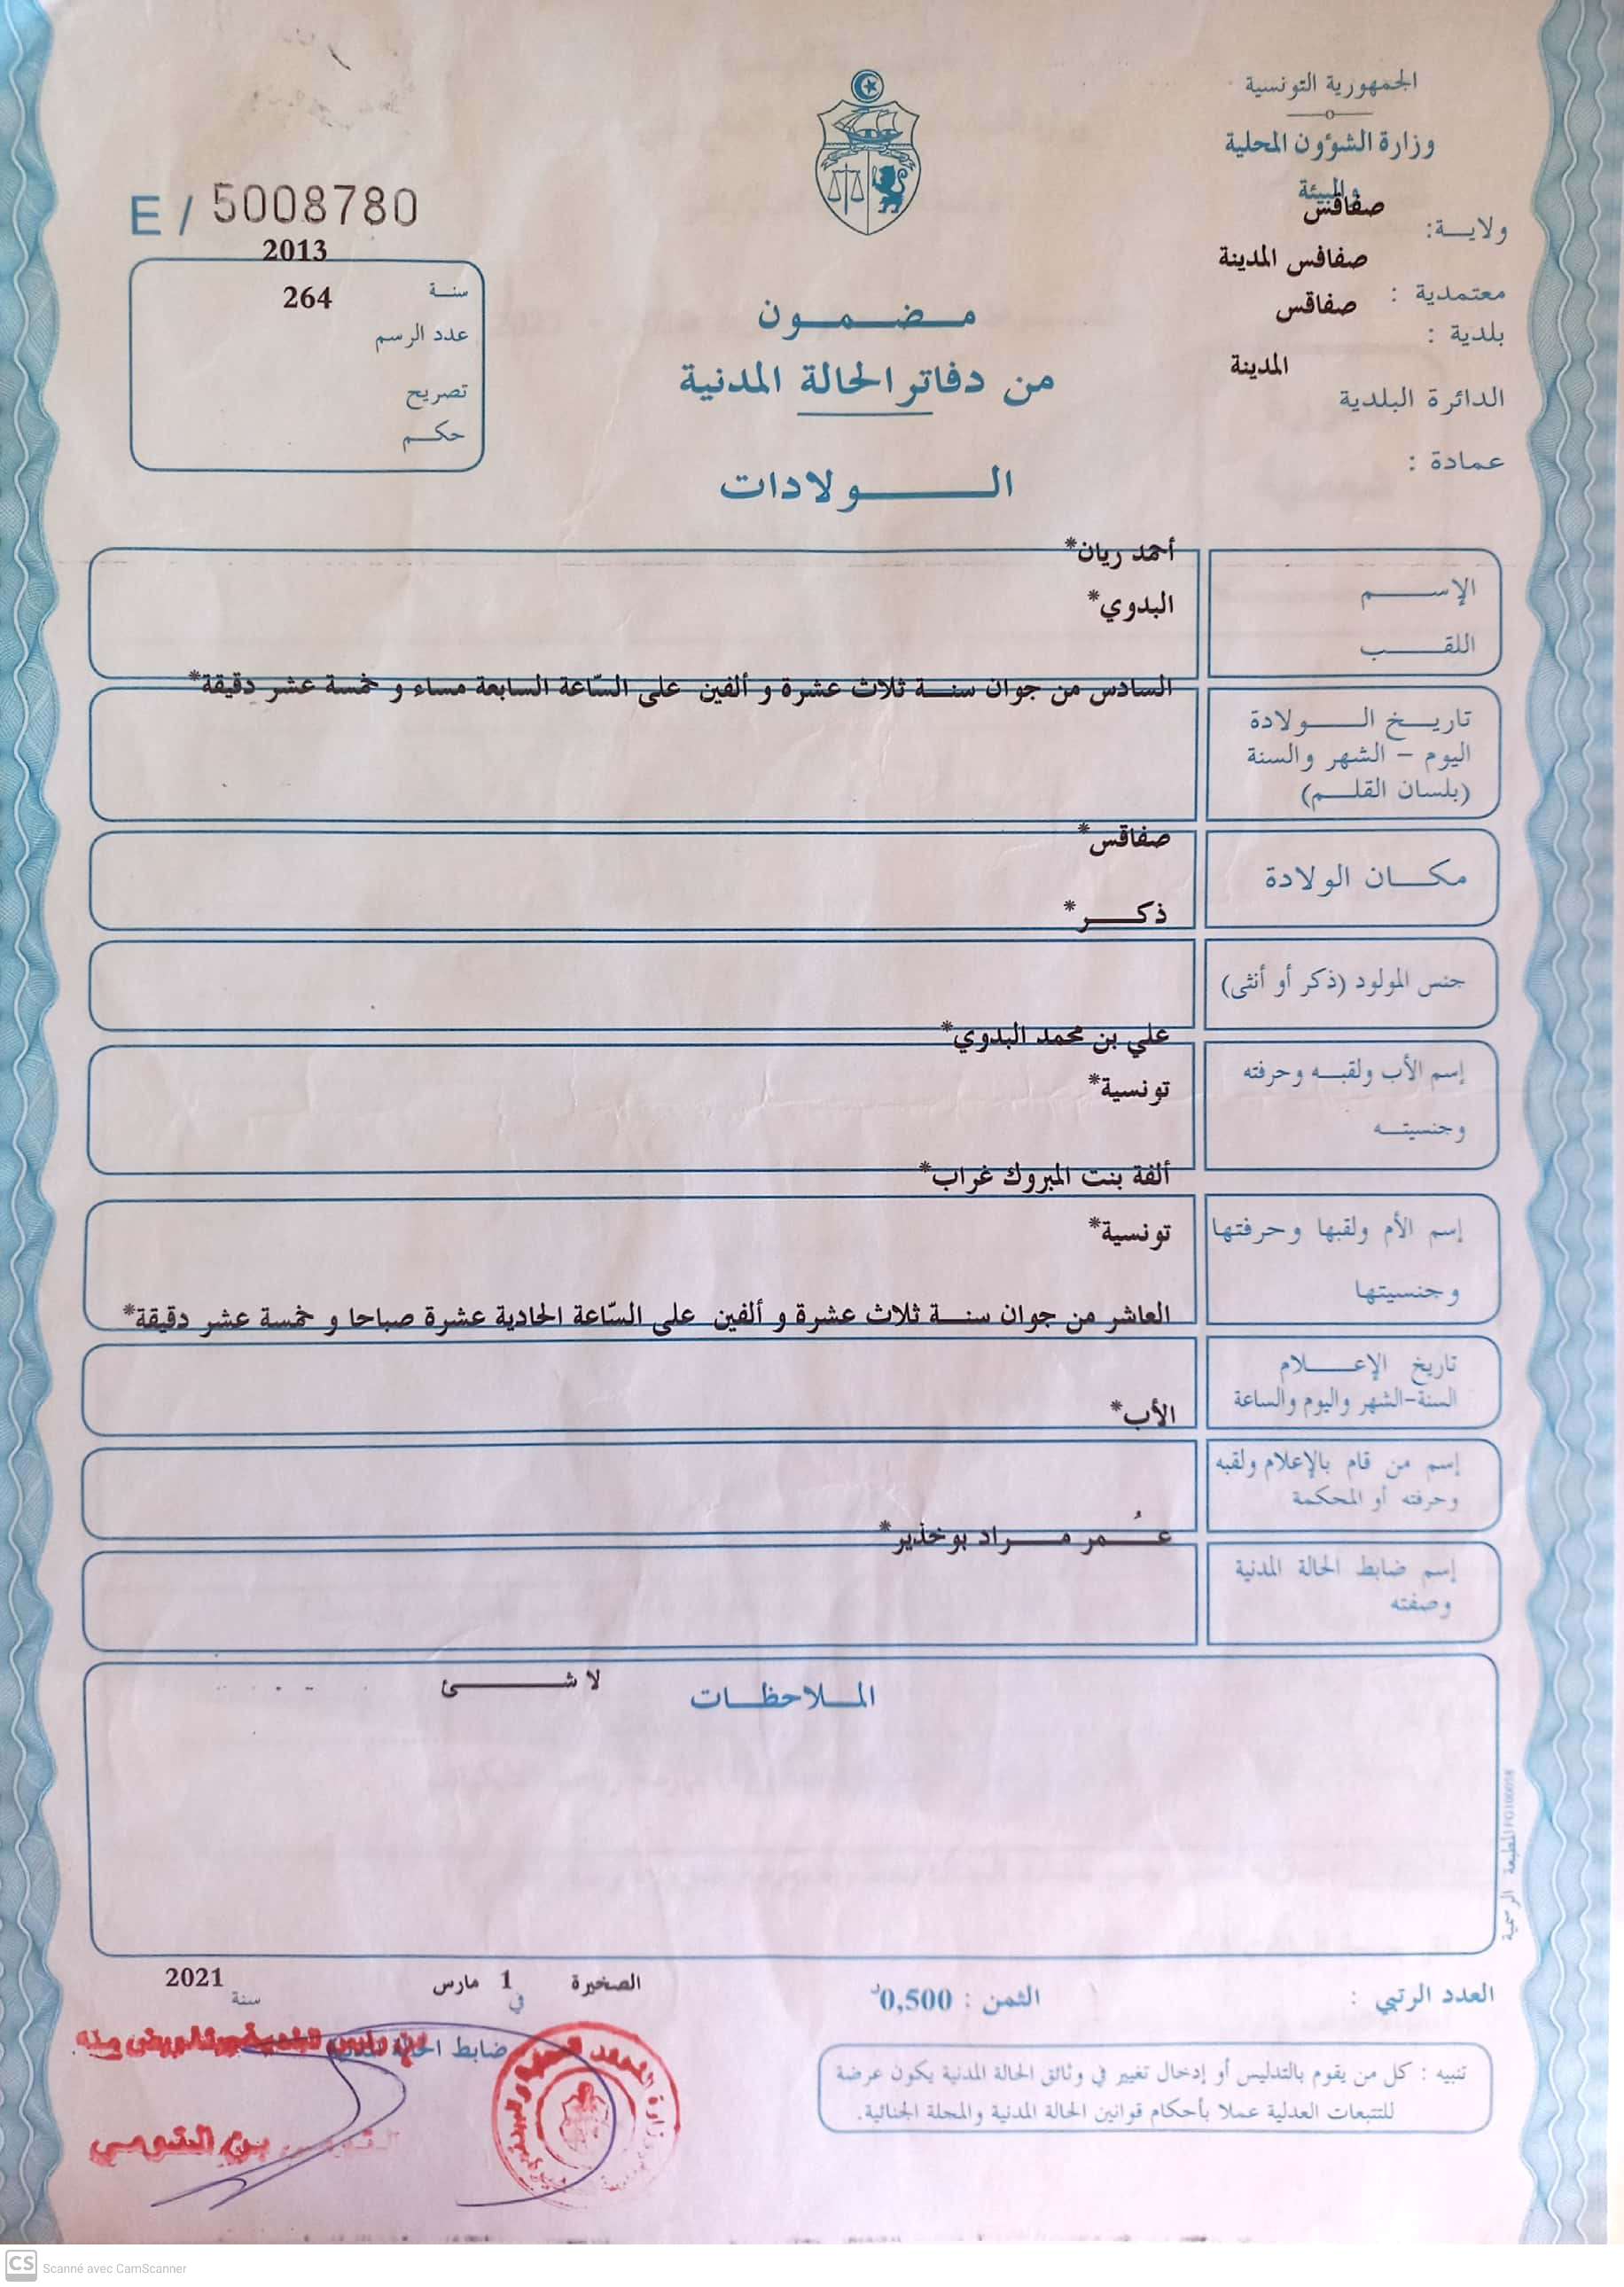 الجمهورية التونسية
وزارة الشؤون المحلية
والبيئة
ولايـة: صفاقس
معتمدية : صفاقس المدينة
بلدية : صفاقس
الدائرة البلدية المدينة
عمادة :
E / 5008780
سنة 2013
عدد الرسم 264
تصريح
حكم
مضمون
من دفاتر الحالة المدنية
الولادات
الإسم أحمد ريان*
اللقب البدوي*
تاريخ الولادة السادس من جوان سنة ثلاث عشرة و ألفين على السّاعة السابعة مساء و خمسة عشر دقيقة*
اليوم – الشهر والسنة
(بلسان القلم)
مكان الولادة صفاقس*
جنس المولود (ذكر أو أنثى) ذكر*
إسم الأب ولقبه وحرفته علي بن محمد البدوي*
وجنسيته تونسية*
إسم الأم ولقبها وحرفتها ألفة بنت المبروك غراب*
وجنسيتها تونسية*
تاريخ الإعلام العاشر من جوان سنة ثلاث عشرة و ألفين على السّاعة الحادية عشرة صباحا و خمسة عشر دقيقة*
السنة-الشهر واليوم والساعة
إسم من قام بالإعلام ولقبه الأب*
وحرفته أو المحكمة
إسم ضابط الحالة المدنية عُمر مراد بوخذير*
وصفته
الملاحظات لا شئ
المطبعة الرسمية
العدد الرتبي :
الثمن : 0,500د
الصخيرة في 1 مارس سنة 2021
ضابط الحالة المدنية
بن التومي
تنبيه : كل من يقوم بالتدليس أو إدخال تغيير في وثائق الحالة المدنية يكون عرضة
للتتبعات العدلية عملا بأحكام قوانين الحالة المدنية والمجلة الجنائية.
CS Scanné avec CamScanner